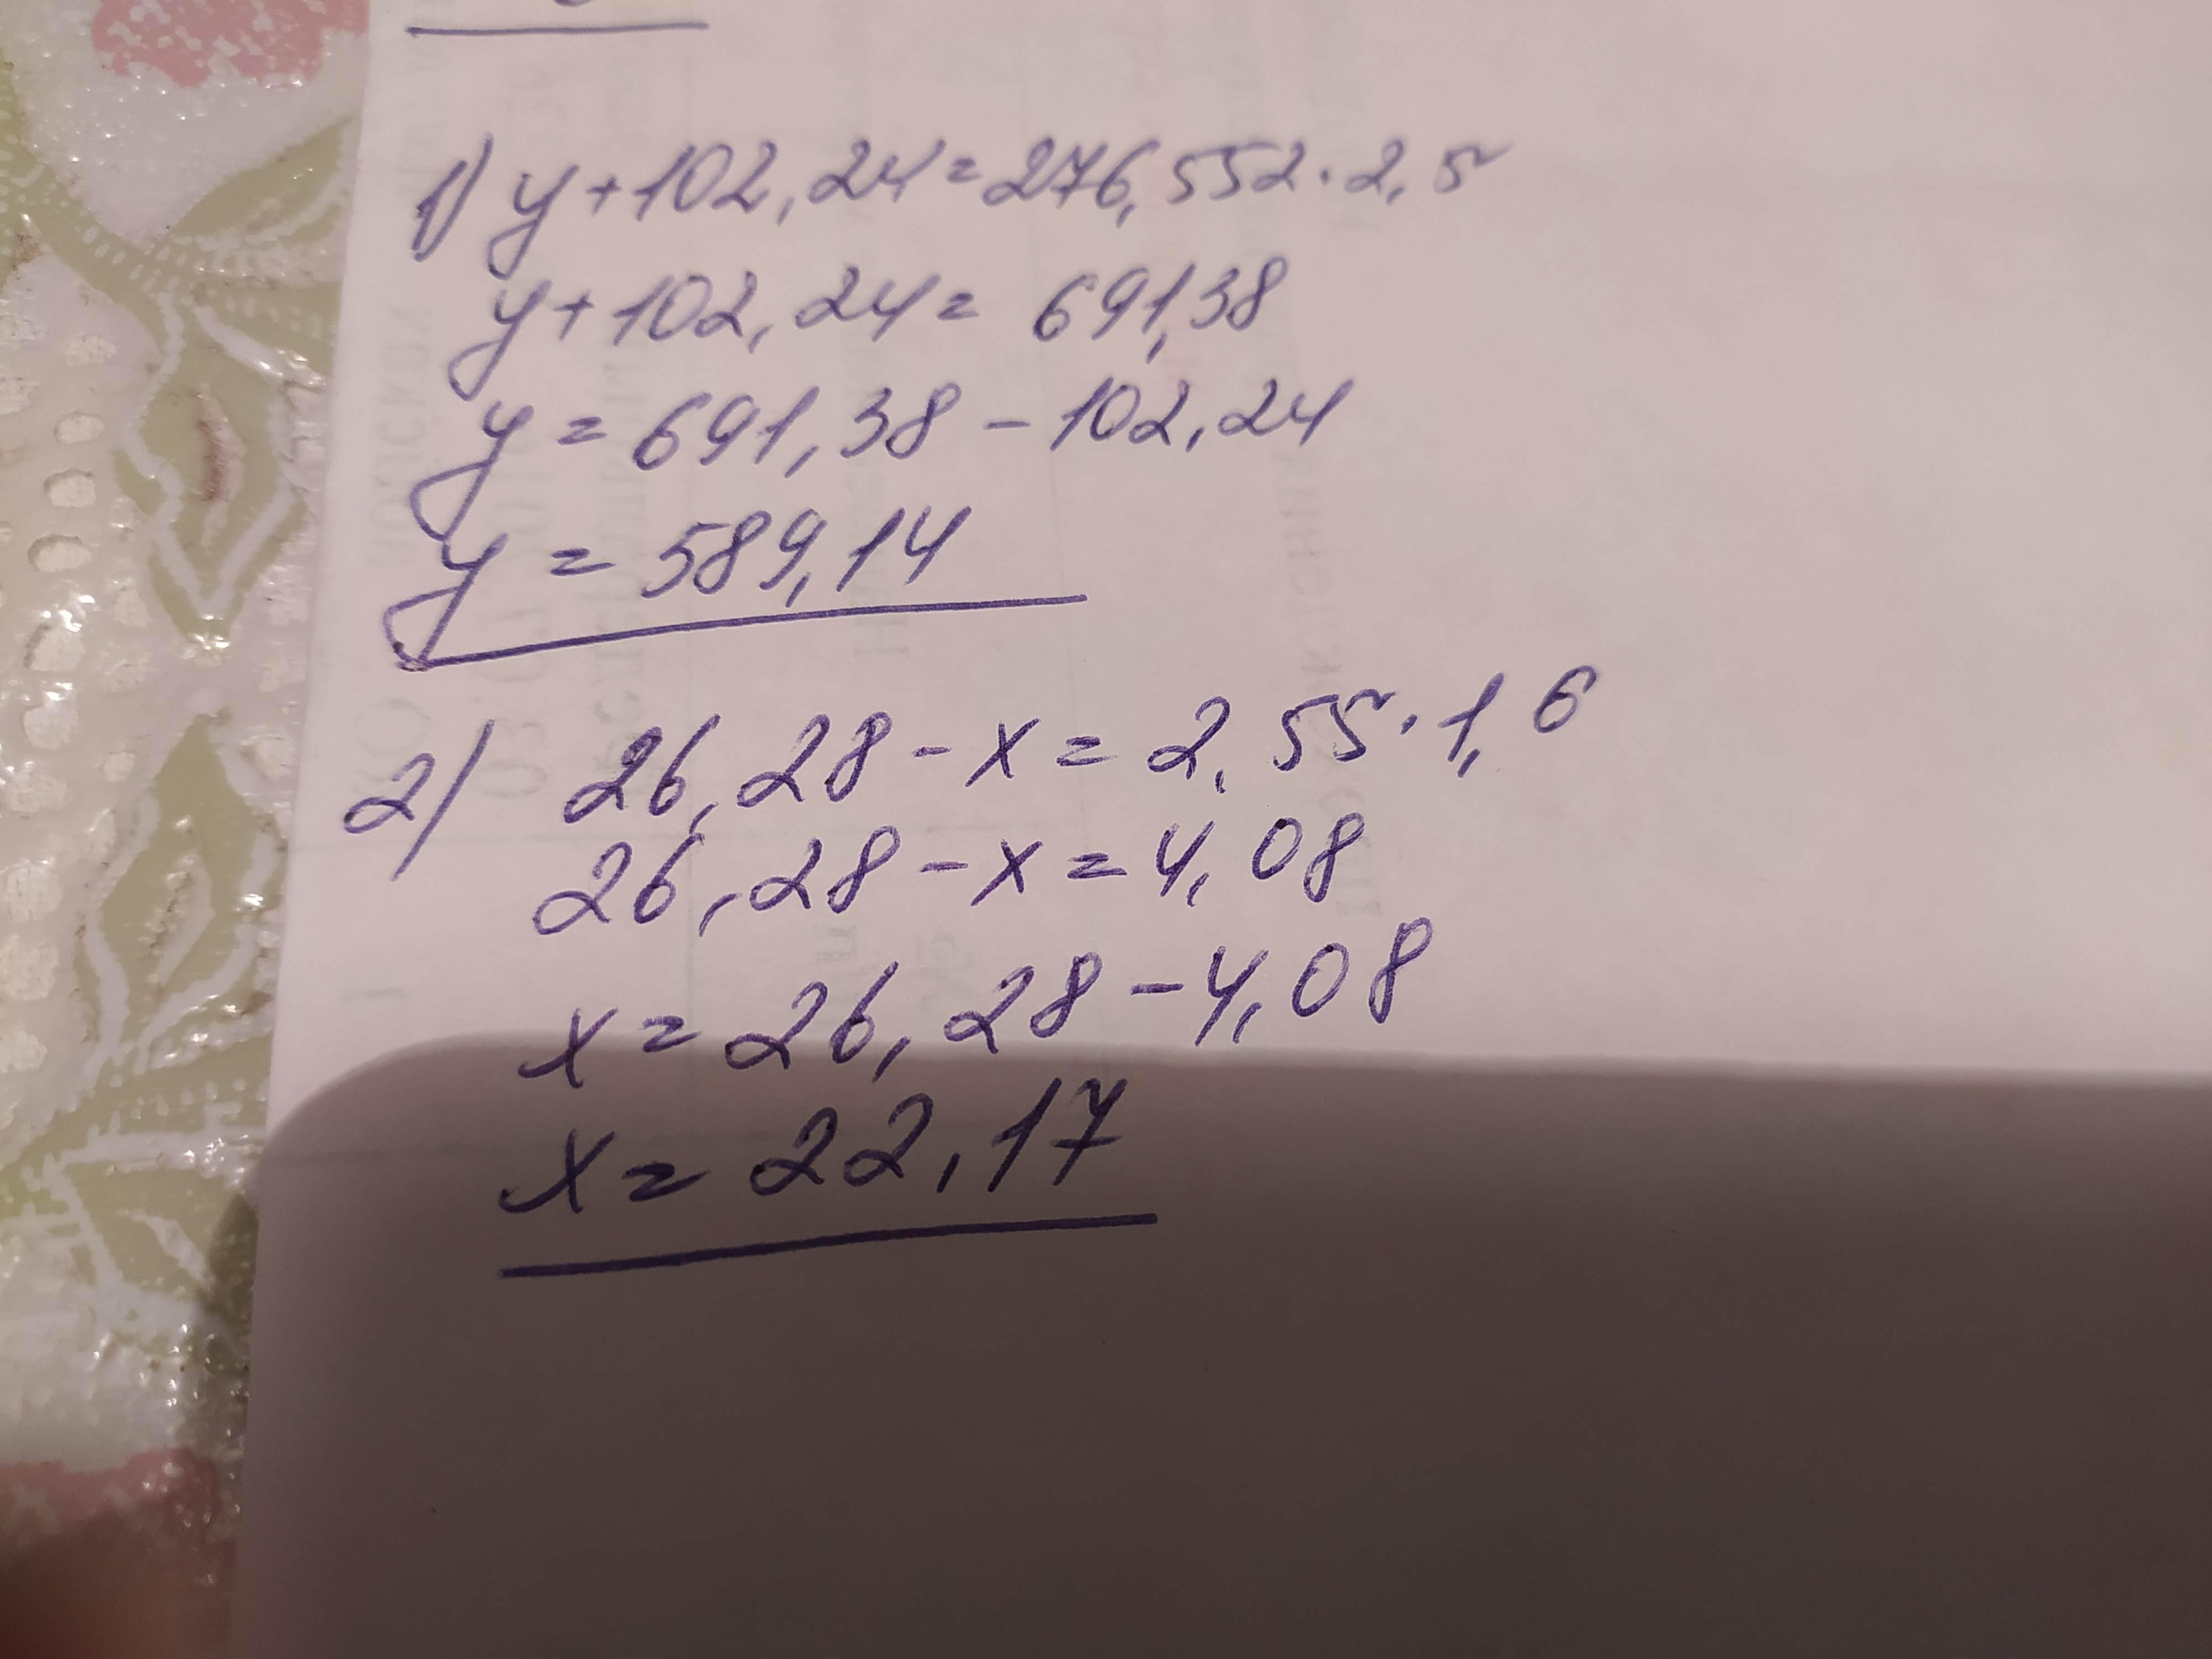 1) y + 102,24 = 276,552 · 2,5
y + 102,24 = 691,38
y = 691,38 - 102,24
y = 589,14
2) 26,28 - x = 2,55 · 1,6
26,28 - x = 4,08
x = 26,28 - 4,08
x = 22,17